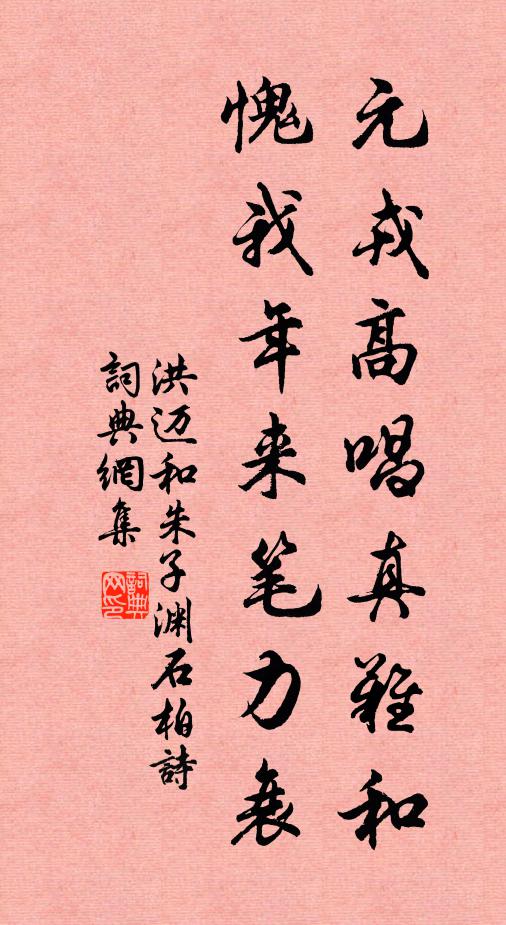 元戎高唱真難和
愧我年来笔力衰
洪迈和朱子渊石柏詩
詞典網集
詞典网印